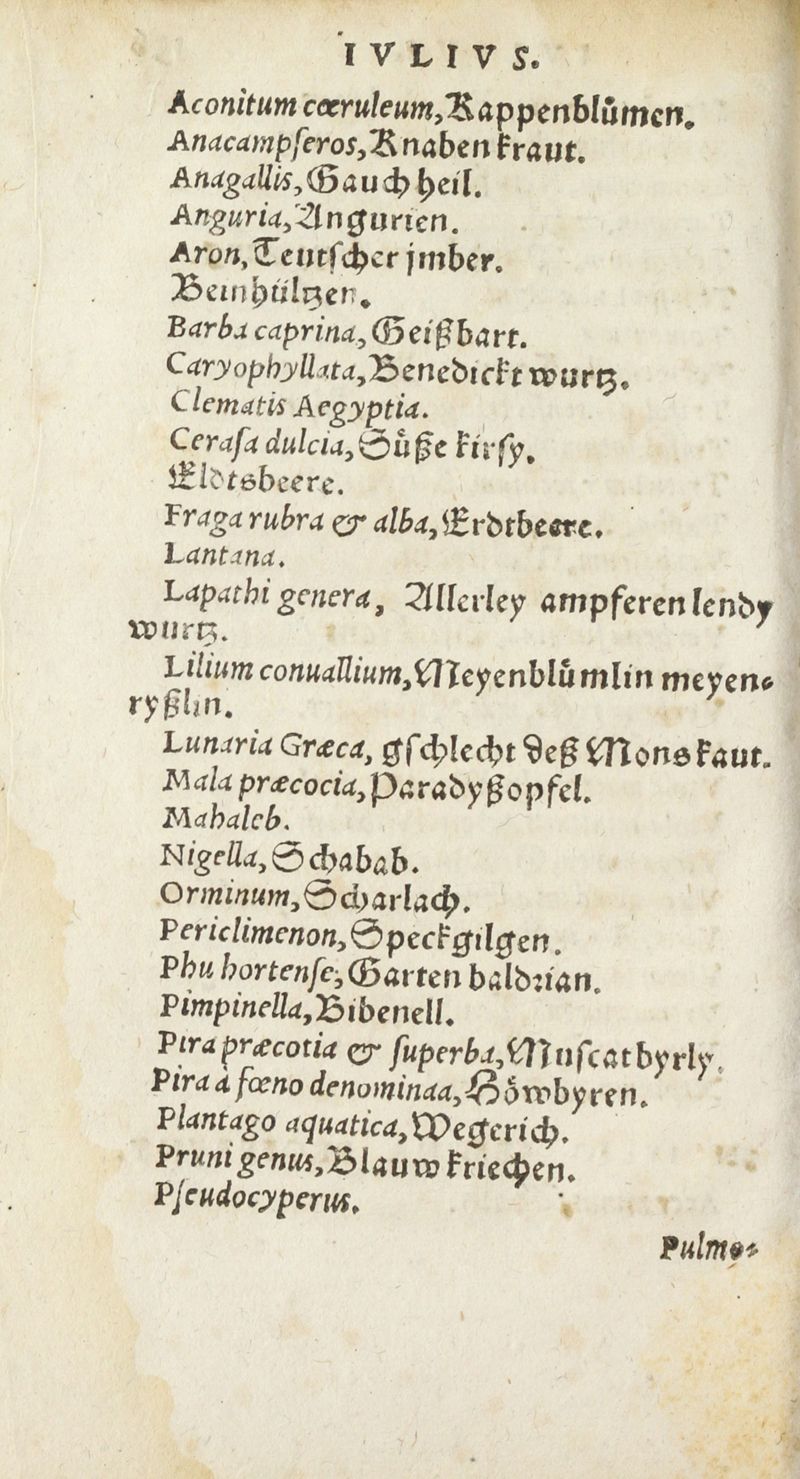 IVLIVS.
Aconitum cœruleum, Kappenblůmen.
Anacampſeros, Knaben kraut.
Anagallis, Gauch heil.
Anguria, Angurien.
Aron, Teutſcher jmber.
Beinhültzen.
Barba caprina, Geißbart.
Caryophyllata, Benedickt wurtz.
Clematis Aegyptia.
Ceraſa dulcia, Sůße kirſy.
Eldtsbeere.
Fraga rubra & alba, Erdtbeere.
Lantana.
Lapathi genera, Allerley ampferen lendy
wurtz.
Lilium conuallium, Meyenblůmlin meyen⸗
ryßlin.
Lunaria Græca, gſchlecht deß Mons kaut.
Mala præcocia, Paradyßopfel.
Mahaleb.
Nigella, Schabab.
Orminum, Scharlach.
Periclimenon, Speckgilgen.
Phu hortenſe, Garten baldꝛian.
Pimpinella, Bibenell.
Pira præcotia & ſuperba, Muſcatbyrly.
Pira a fœno denominaa, Hôwbyren.
Plantago aquatica, Wegerich.
Pruni genus, Blauw kriechen.
Pſeudocyperus.
Pulmo⸗